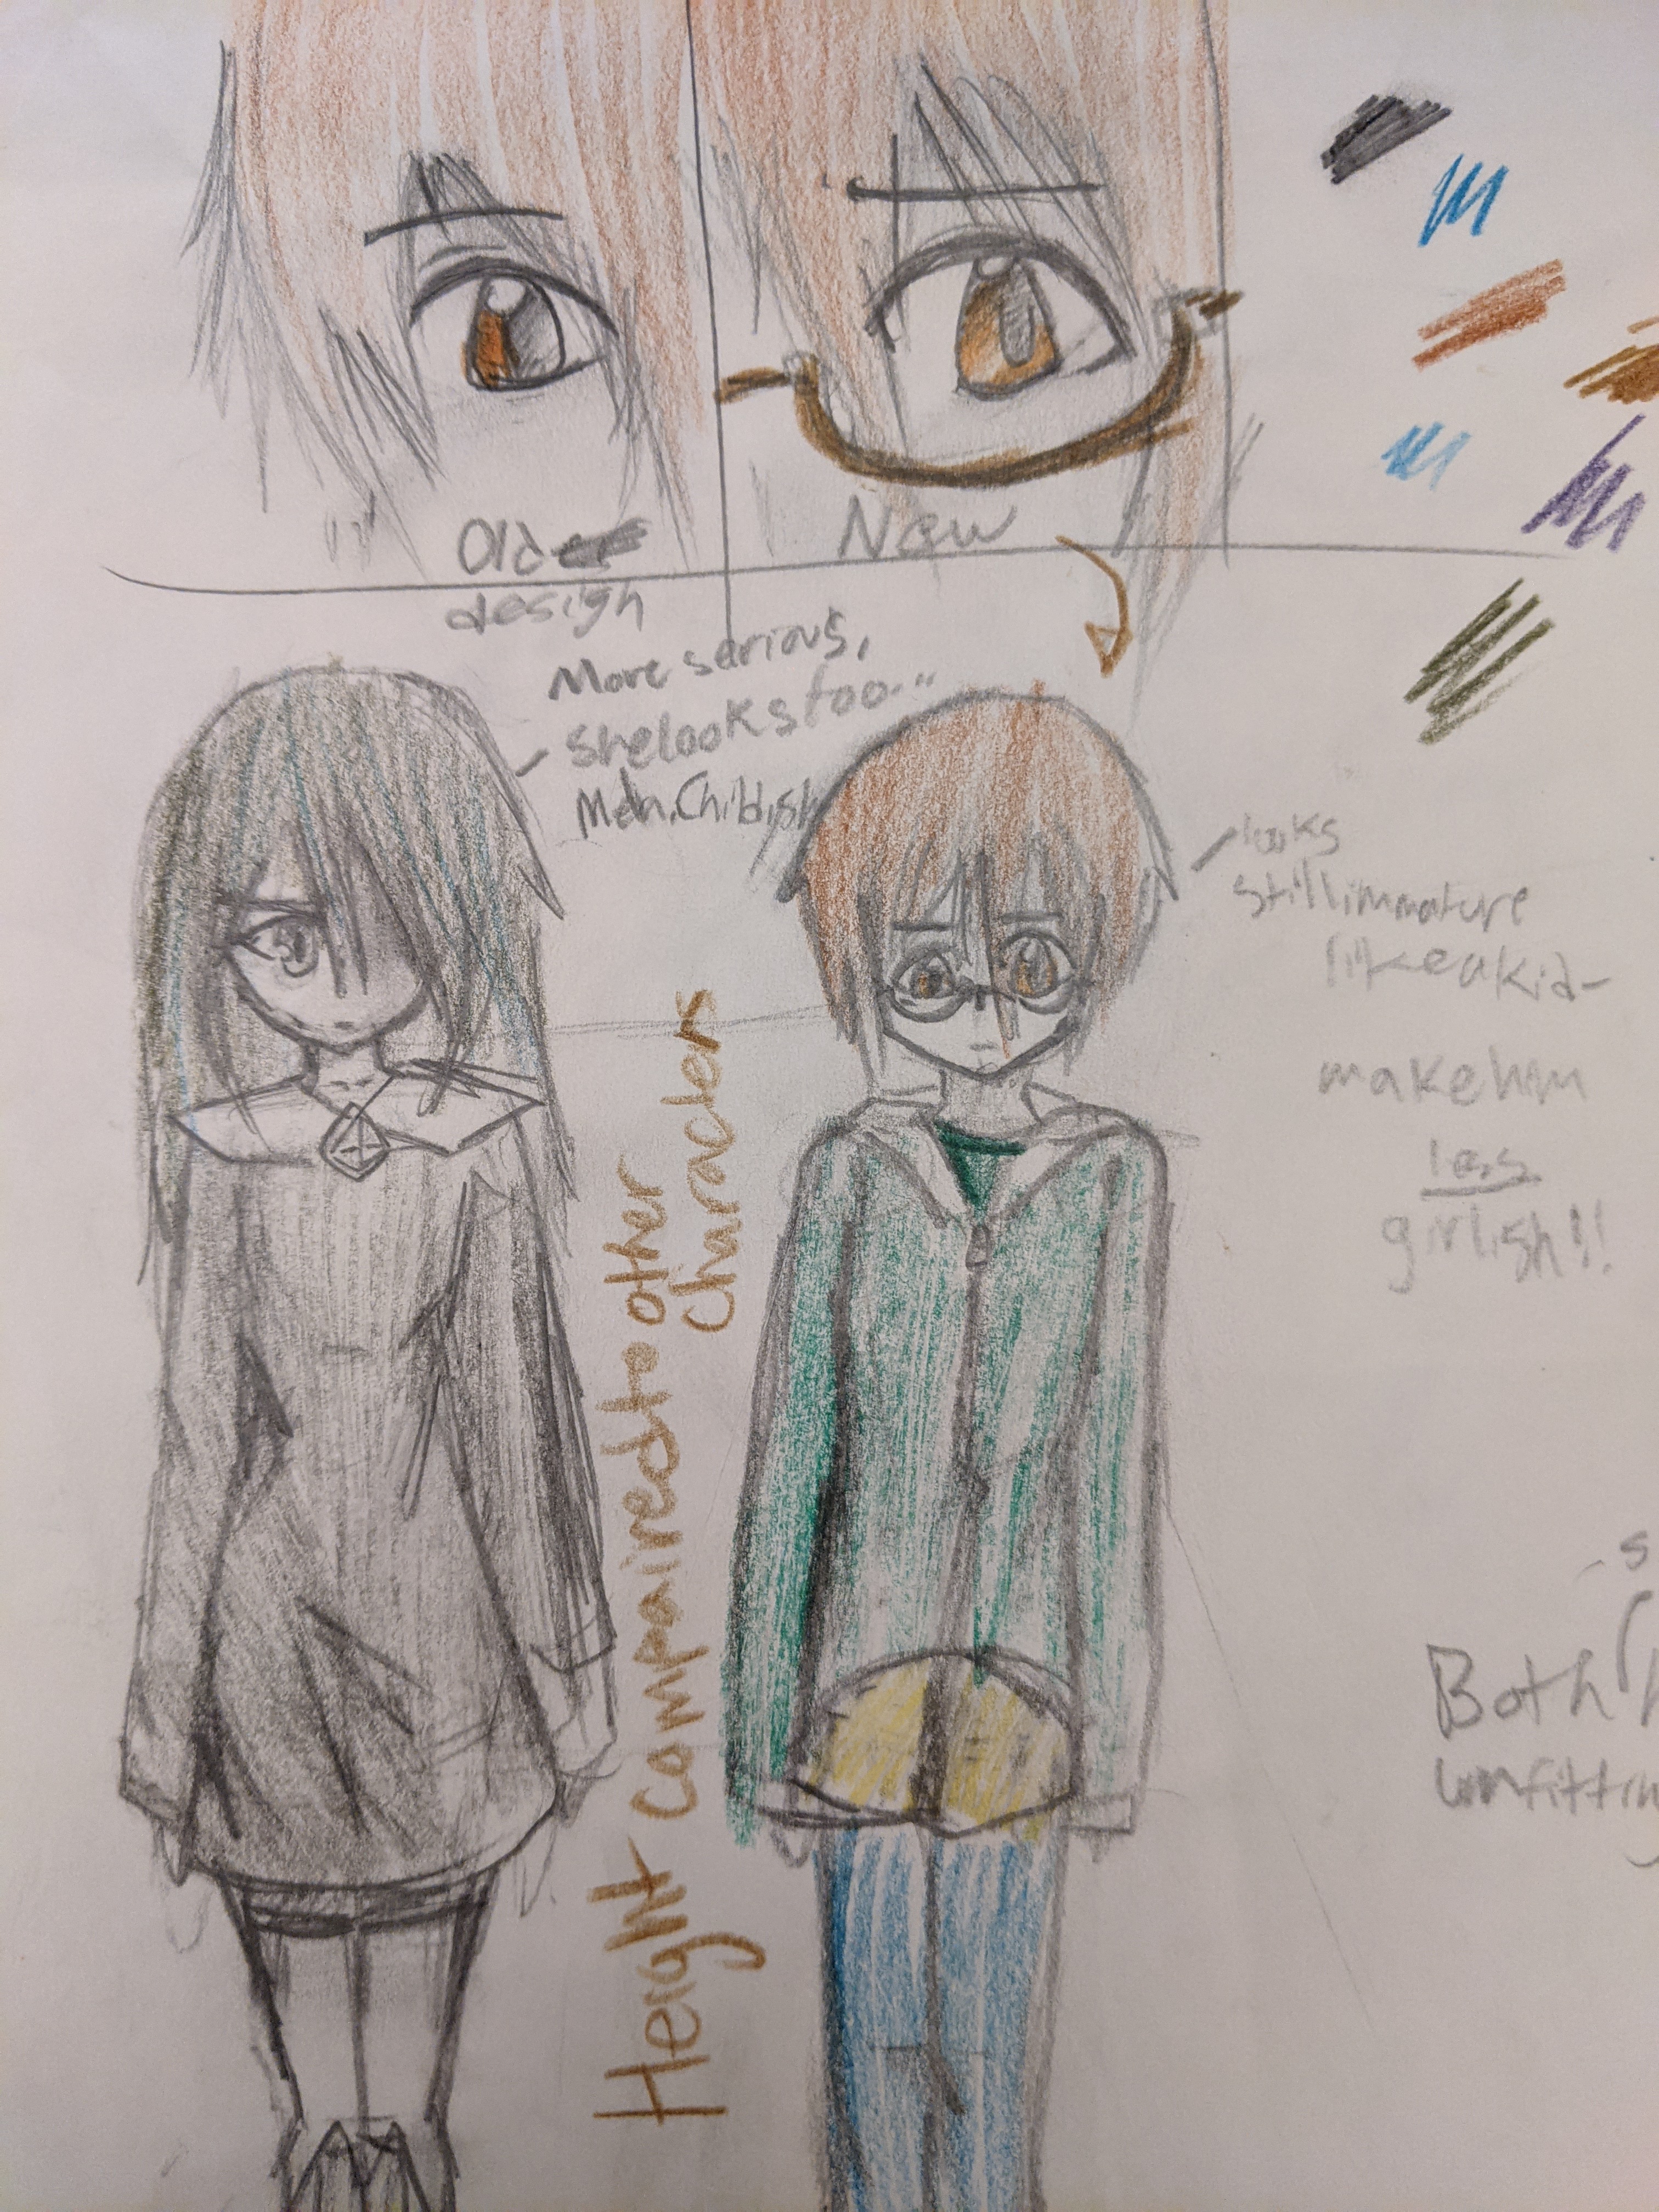 Old
design
New
More serious,
she looks too...
Meh. Childish
looks
still immature
like a kid-
make him
les
girlish!!
Height compaired to other
characters
Both
unfitting